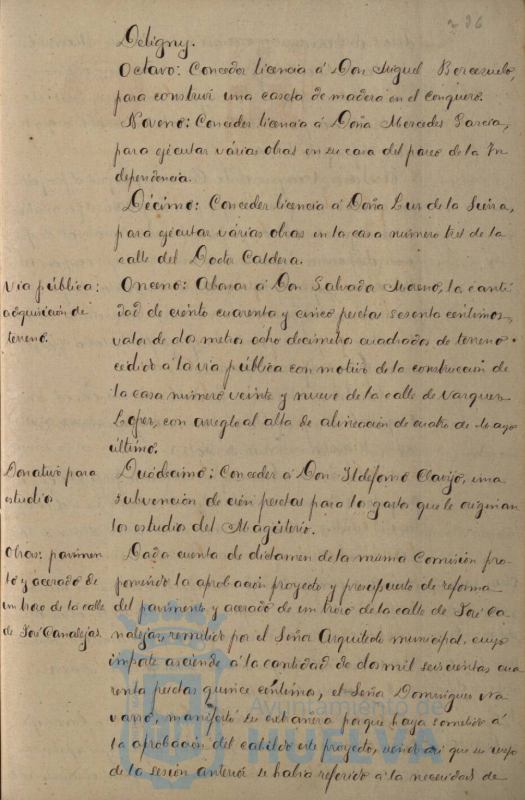 236
Deligny.
Octavo: Conceder licencia á Don Miguel Berezuelo,
para construir una caseta de madera en el Conquero.
Noveno: Conceder licencia á Doña Mercedes García,
para ejecutar várias obras en su casa del paseo de la In
dependencia.
Décimo: Conceder licencia á Doña Luz de la
para ejecutar várias obras en la casa número tres de la
calle del Doctor Caldera.
Via pública:
adquisición de
terreno.
Onceno: Abonar á Don Salvador Moreno, la canti
dad de ciento cuarenta y cinco pesetas sesenta céntimos,
valor de dos metros ocho decimetros cuadrados de terreno
cedido á la via pública con motivo de la construcción de
la casa número veinte y nueve de la calle de Vazquez
Lopez, con arreglo al alta de alineación de cuatro de Mayo
último.
Donativo para
estudios
Duodecimo: Conceder á Don Ildefonso Clavijo, una
subvención de cien pesetas para los gastos que le originan
los estudios del Magisterio.
Obras: pavimen
to y acerado de
un trozo de la calle
de José Canalejas.
Dada cuenta de dictamen de la misma Comisión pro-
poniendo la aprobación proyecto y presupuesto de reforma
del pavimento y acerado de un trozo de la calle de José Ca
nalejas, remitido por el Señor Arquitecto municipal, cuyo
importe asciende á la cantidad de dos mil seiscientas cua
renta pesetas quince céntimos, el Señor Dominguez Na
varro, manifestó su extrañeza porque haya sometido á
la aprobación del cabildo este proyecto, que su ruego
de la sesión anterior se había referido á la necesidad de
Ayuntamiento de
HUELVA